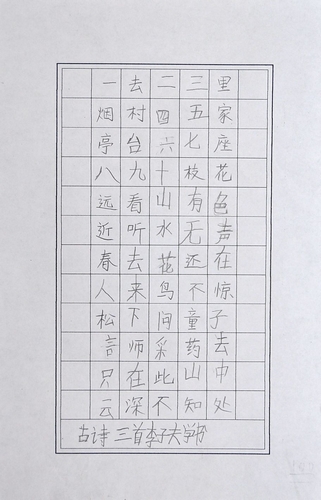 一去二三里
烟村四五家
亭台六七座
八九十枝花
远看山有色
近听水无声
春去花还在
人来鸟不惊
松下问童子
言师采药去
只在此山中
云深不知处
古诗三首李子夫学书